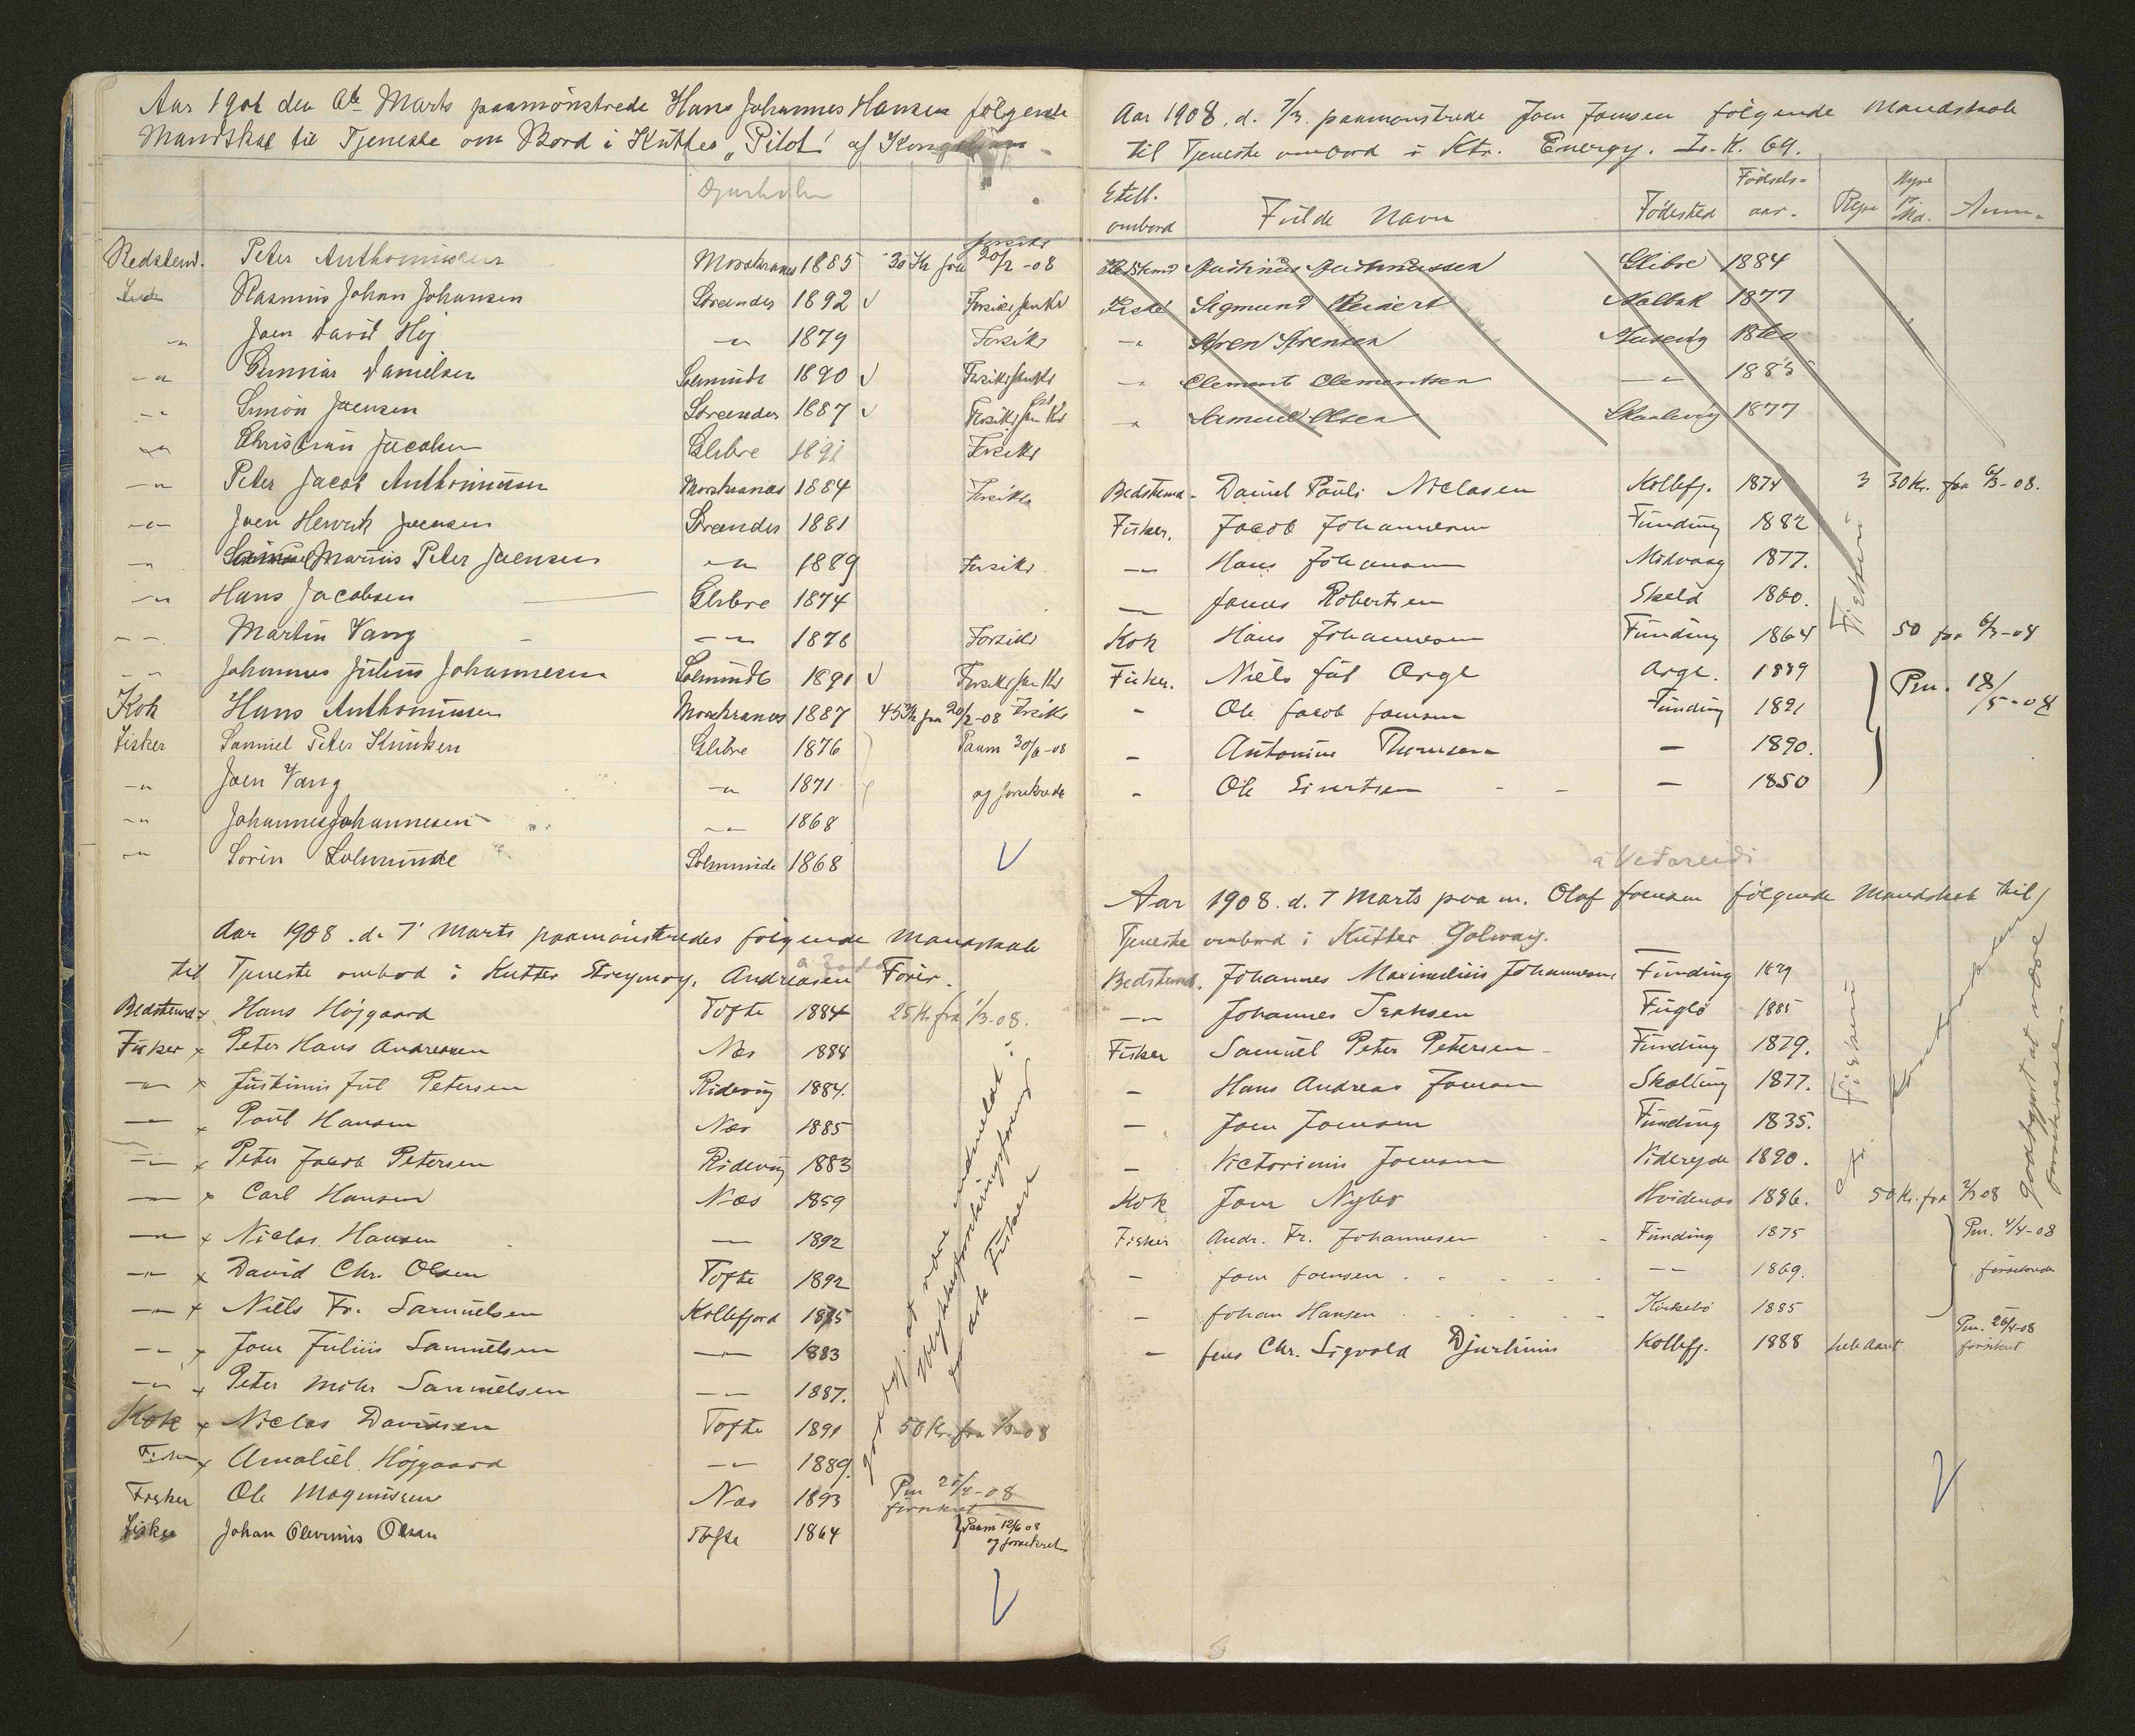 Aar 1908 den 6te Marts paamönstrede Hans Johannes Hansen følgende
Mandskab til Tjeneste om Bord i Kutter "Pilot" af
Bedstemd. Peter Anthoniussen Morskranes 1885 30 Kr fra 20/2-08
Rasmus Johan Johansen 1892 √
-"- Joen David Høj -"- 1879 Forsikr
-"- Gunnar Danielsen Solmunde 1890 √
-"- Simon Joensen 1887 √
-"- Christian Jacobsen Glibre 1891 Forsikr
-"- Peter Jacob Anthoniussen Morskranes 1884 Forsikr
-"- Joen Henrik Joensen 1881
-"- Marius Peter Joensen -"- 1889 Forsikr
-"- Hans Jacobsen Glibre 1874
-"- Martin Vang -"- 1876 Forsikr
-"- Johannes Julius Johannesen Solmunde 1891 √
Kok Hans Anthoniussen Morskranes 1887 45 Kr fra 20/2-08 Forsikr
Fisker Samuel Peter Knudsen Glibre 1876 Paam 30/4-08
-"- Joen Vang -"- 1871 og forsikrede
-"- Johannes Johannesen -"- 1868
-"- Sorin Solmunde Solmunde 1868 √
Aar 1908 d. 7 Marts paamönstredes følgende Mandskab
til Tjeneste ombord i Kutter Streymoy, Andreasen Förer.
Bedstemd. x Hans Højgaard Tofte 1884 25 Kr fra 1/3-08.
Fisker x Peter Hans Andreasen Næs 1888
-"- x Justinus Jul Petersen Ridevig 1884.
-"- x Poul Hansen Næs 1885
-"- x Peter Jacob Petersen Ridevig 1883
-"- x Carl Hansen Næs 1859
-"- x Niclas Hansen -"- 1892
-"- x David Chr. Olsen Tofte 1892
-"- x Niels Fr. Samuelsen Kollefjord 1875
-"- x Joen Julius Samuelsen -"- 1883
-"- x Peter Mohr Samuelsen -"- 1887.
Kok x Niclas Davidsen Tofte 1891 50 Kr. fra 1/3-08
Fisker x Amaliel Højgaard -"- 1889.
Fisker Ole Magnussen Næs 1893 Pm 25/4-08 forsikret
Fisker Johan Olevinus Olsen Tofte 1864 Paam 12/6 08
og forsikret √
godtgj. at være anmeldt
Ulykkesforsikringsforening
for dsk Fiskere
Aar 1908, d. 7/3. paamönstrede Joen Joensen følgende Mandskab
til Tjeneste ombord i Ktr. Energy. I.K. 69.
Still. ombord Fulde Navn Födested Födselsaar. Rejse Hyre pr. Md. Anm.
Bedstemd Justinus Justinussen Glibre 1884
Fisker Sigmund Reinert Nolbak 1877
-"- Sören Sörensen 1860
-"- Clement Clementsen -"- 1885
-"- Samuel Olsen Skaalevig 1877
Bedstemd. Daniel Pauli Niclasen Kollefj. 1874 3 30 Kr. fra 6/3-08.
Fisker. Jacob Johannesen Funding 1882
-"- Hans Johansen Midvaag 1877.
— Jonas Robertsen Skeld 1860. Fiskeri
Kok Hans Johannesen Funding 1864 50 fra 6/3-08
Fisker. Niels Jul Arge Arge. 1889 Pm. 18/5-08
- Ole Jacob Joensen Funding 1891
- Antonius Thomsen — 1890.
- Ole Sivertsen — 1850
Aar 1908. d. 7 Marts paa m. Olaf Joensen følgende Mandskab til
Tjeneste ombord i Kutter Golway.
Bedstemd. Johannes Maximilius Johannesen Funding 1879
-"- Johannes Isaksen Fuglø 1885
Fisker Samuel Peter Petersen Funding 1879.
- Hans Andreas Joensen Skælling 1877. Fiskeri
- Joen Joensen Funding 1835.
- Victorinus Joensen Videreide 1890.
Kok Joen Nybo Hvidenæs 1886. 50 Kr. fra 2/3 08
Fisker Andr. Fr. Johannesen Funding 1875 Pm. 4/4-08
- Joen Joensen -"- 1869. forsikrede
- Johan Hansen Kirkebø 1885
- Jens Chr. Sigvald Djurhuus Kollefj. 1888 hele Aaret Pm. 26/4-08 forsikret
godtgjort at være
forsikrede.
√